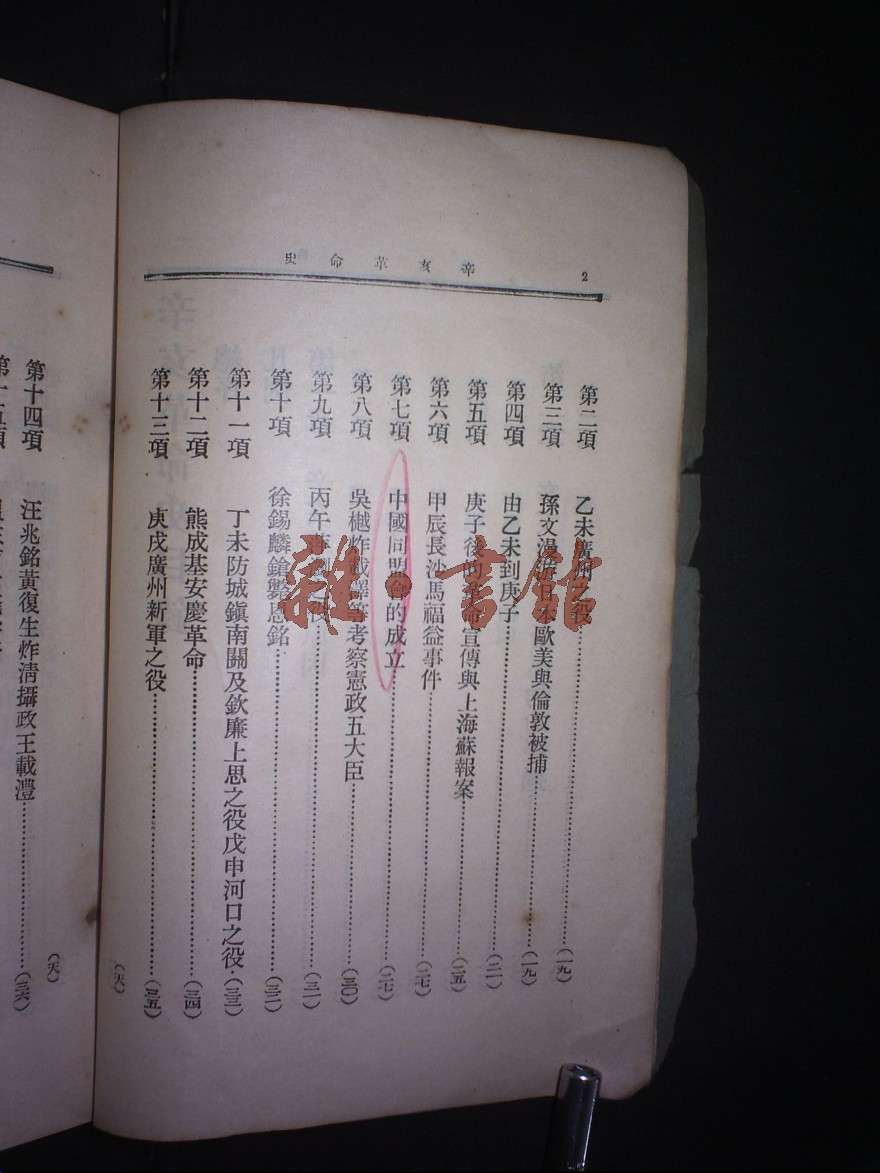 2 辛亥革命史
第二項 乙未廣州之役……(一九)
第三項 孫文漫遊日本歐美與倫敦被捕……(一九)
第四項 由乙未到庚子……(二一)
第五項 庚子後的革命宣傳與上海蘇報案……(二五)
第六項 甲辰長沙馬福益事件……(二七)
第七項 中國同盟會的成立……(二七)
第八項 吳樾炸載澤等考察憲政五大臣……(三〇)
第九項 丙午萍瀏之役……(三一)
第十項 徐錫麟鎗斃恩銘……(三二)
第十一項 丁未防城鎮南關及欽廉上思之役戊申河口之役……(三三)
第十二項 熊成基安慶革命……(三四)
第十三項 庚戌廣州新軍之役……(三五)
第十四項 汪兆銘黃復生炸清攝政王載灃……(三六)
第十五項
雜·書館